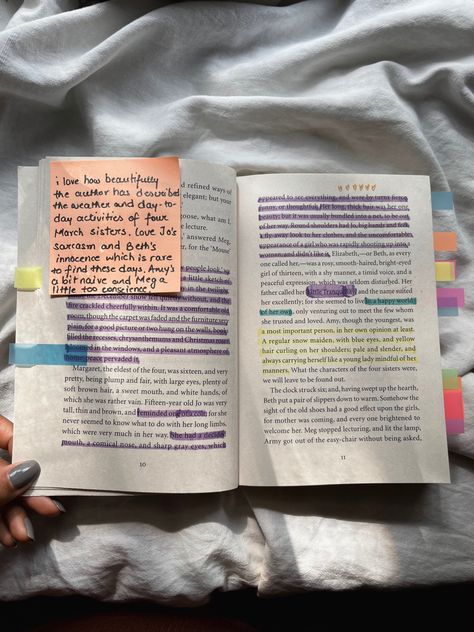 i love how beautifully
the author has described
the weather and day-to
day activities of four
March sisters. Love Jo's
sarcasm and Beth's
innocence which is rare
to find these days, Amy's
a bit naive and Meg a
little too conscience.
d refined ways of
elegant; but your
oose, what I am,
lecture.
answered Meg,
for the 'Mouse
people look,' so
a little sketch of
in the twilight,
the December snow fell quietly without, and the
fire crackled cheerfully within. It was a comfortable old
room, though the carpet was faded and the furniture very
plain; for a good picture or two hung on the walls, books
filled the recesses, chrysanthemums and Christmas roses
bloomed in the windows, and a pleasant atmosphere of
home-peace pervaded it.
Margaret, the eldest of the four, was sixteen, and very
pretty, being plump and fair, with large eyes, plenty of
soft brown hair, a sweet mouth, and white hands, of
which she was rather vain. Fifteen-year old Jo was very
tall, thin and brown, and reminded one of a colt; for she
never seemed to know what to do with her long limbs,
which were very much in her way. She had a decided
mouth, a comical nose, and sharp gray eyes, which
10
appeared to see everything, and were by turns fierce
funny, or thoughtful. Her long, thick hair was her one
beauty; but it was usually bundled into a net, to be out
of her way. Round shoulders had Jo, big hands and feet,
a fly-away look to her clothes, and the uncomfortable
appearance of a girl who was rapidly shooting up into a
woman, and didn't like it. Elizabeth,—or Beth, as every
one called her,—was a rosy, smooth-haired, bright-eyed
girl of thirteen, with a shy manner, a timid voice, and a
peaceful expression, which was seldom disturbed. Her
father called her 'Little Tranquillity', and the name suited
her excellently; for she seemed to live in a happy world
of her own, only venturing out to meet the few whom
she trusted and loved. Amy, though the youngest, was
a most important person, in her own opinion at least.
A regular snow maiden, with blue eyes, and yellow
hair curling on her shoulders; pale and slender, and
always carrying herself like a young lady mindful of her
manners. What the characters of the four sisters were,
we will leave to be found out.
The clock struck six; and, having swept up the hearth,
Beth put a pair of slippers down to warm. Somehow the
sight of the old shoes had a good effect upon the girls,
for mother was coming, and every one brightened to
welcome her. Meg stopped lecturing, and lit the lamp,
Amy got out of the easy-chair without being asked,
11